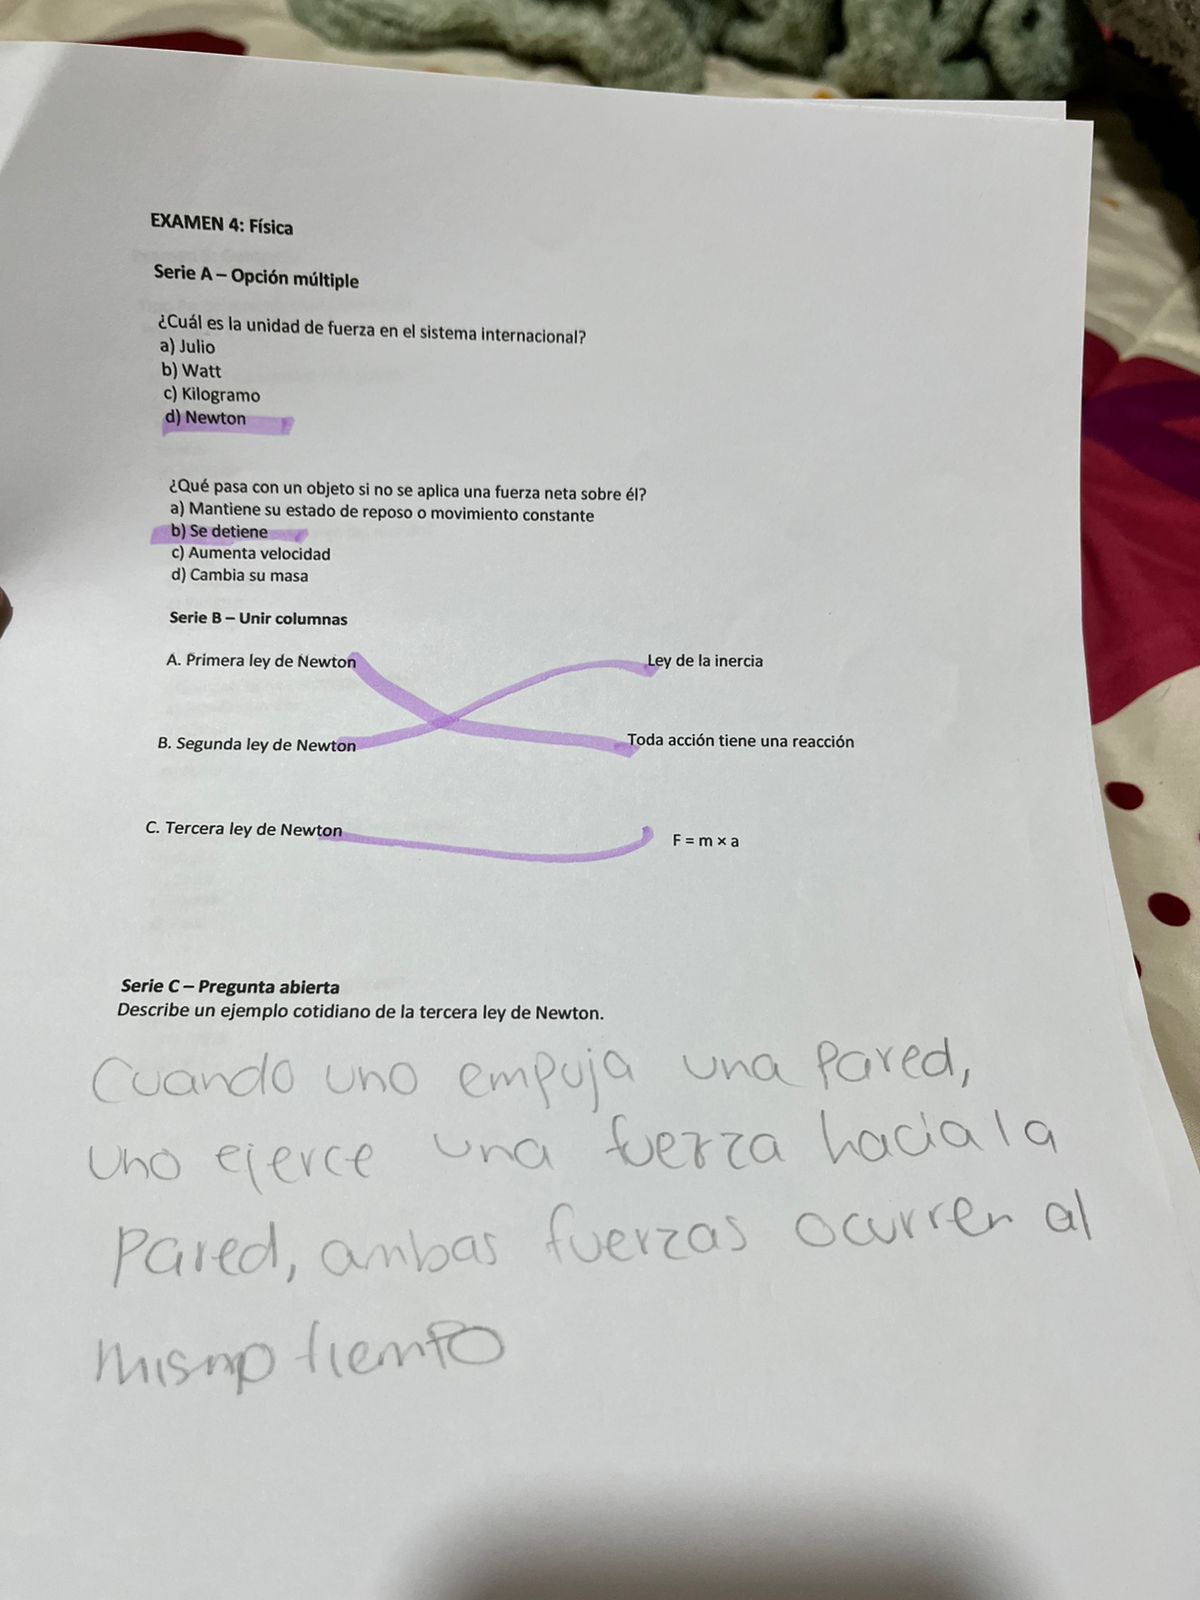 EXAMEN 4: Física
Serie A – Opción múltiple
¿Cuál es la unidad de fuerza en el sistema internacional?
a) Julio
b) Watt
c) Kilogramo
d) Newton
¿Qué pasa con un objeto si no se aplica una fuerza neta sobre él?
a) Mantiene su estado de reposo o movimiento constante
b) Se detiene
c) Aumenta velocidad
d) Cambia su masa
Serie B – Unir columnas
A. Primera ley de Newton Ley de la inercia
B. Segunda ley de Newton Toda acción tiene una reacción
C. Tercera ley de Newton F = m x a
Serie C – Pregunta abierta
Describe un ejemplo cotidiano de la tercera ley de Newton.
Cuando uno empuja una pared,
uno ejerce una fuerza hacia la
pared, ambas fuerzas ocurren al
mismo tiempo